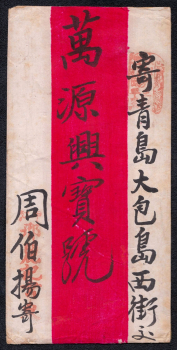 寄青島大包島西街交
萬源興寶號
周伯揚寄